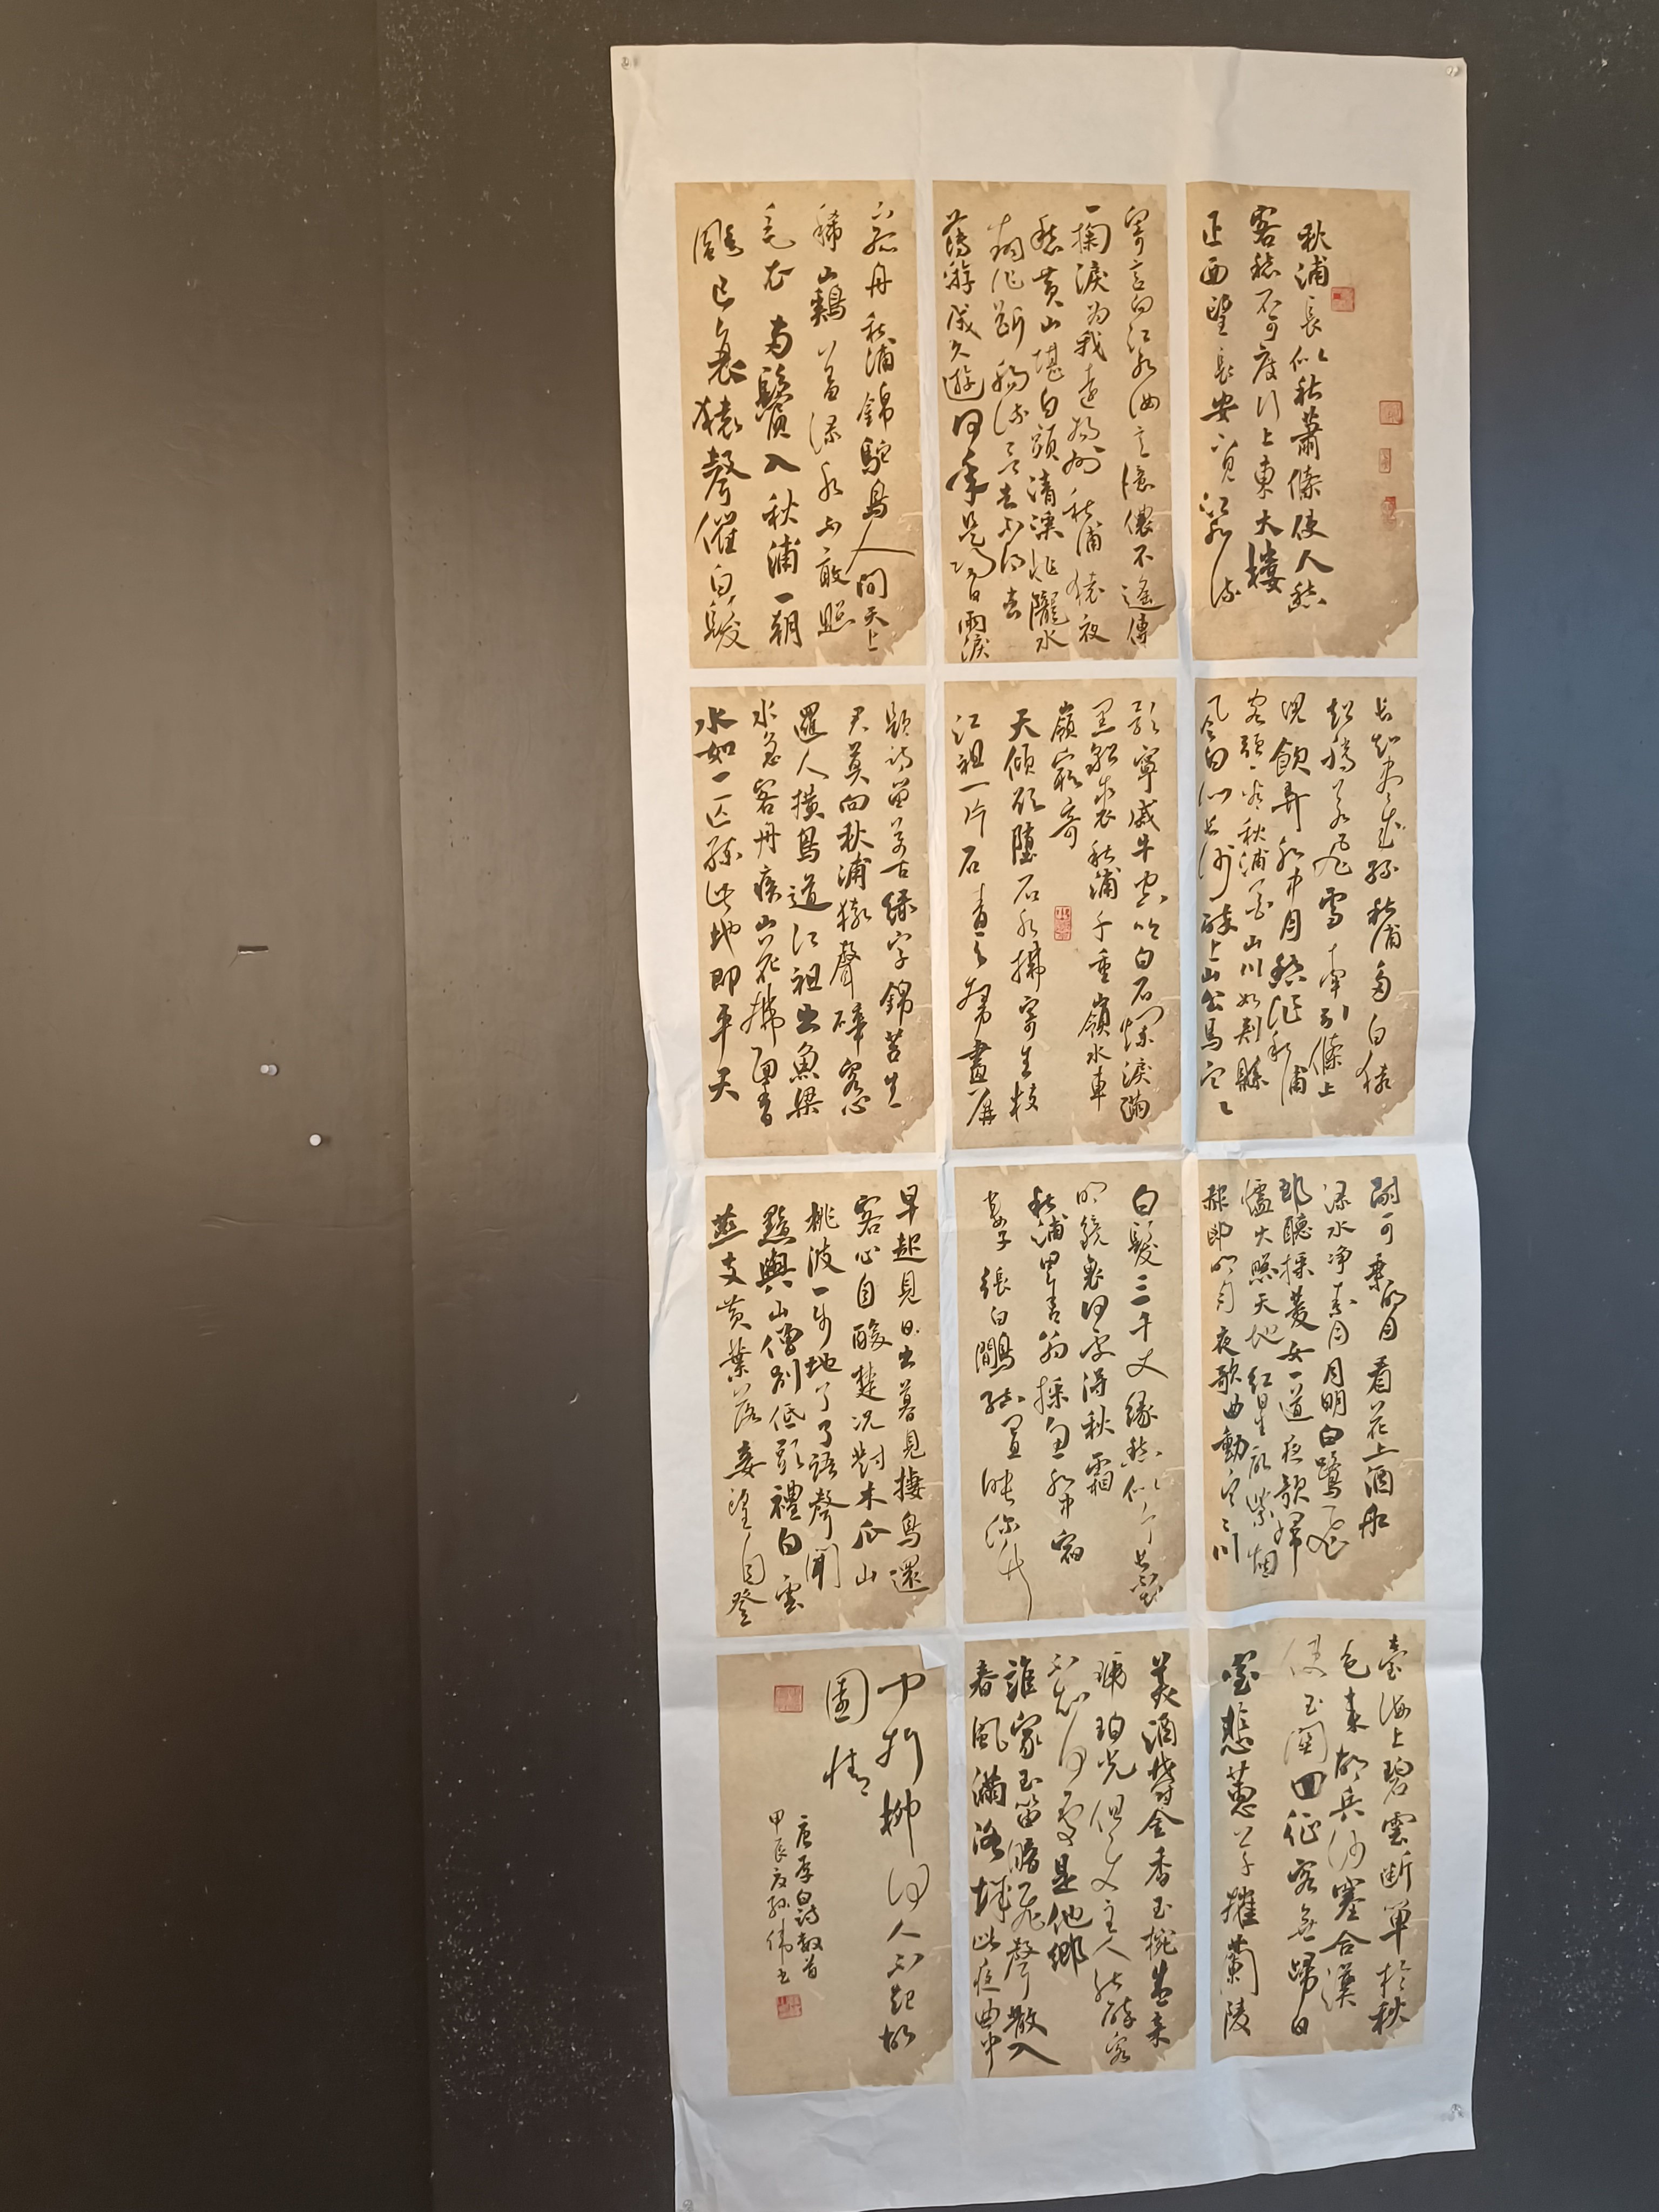 秋浦長似秋蕭條使人愁
客愁不可度行上東大樓
正西望長安下見江水流
寄言向江水汝意憶儂不遙傳
一掬淚為我達揚州秋浦猿夜
愁黃山堪白頭清溪非隴水
翻作斷腸流欲去不得去
薄遊成久遊何年是歸日雨淚
下孤舟秋浦錦駝鳥人間天上
稀山雞羞淥水不敢照
毛衣兩鬢入秋浦一朝
颯已衰猿聲催白髮
長短盡成絲秋浦多白猿
超騰若飛雪牽引條上
兒飲弄水中月愁作秋浦
客強看秋浦花山川如剡縣
風日似長沙醉上山公馬寒
歌寧戚牛空吟白石爛淚滿
黑貂裘秋浦千重嶺水車
嶺最奇
天傾欲墮石水拂寄生枝
江祖一片石青天掃畫屏
題詩留萬古綠字錦苔生
君莫向秋浦猿聲碎客心
邏人橫鳥道江祖出魚梁
水急客舟疾山花拂面香
水如一匹練此地即平天
耐可乘明月看花上酒船
淥水淨素月月明白鷺飛
郎聽採菱女一道夜歌歸
爐火照天地紅星亂紫煙
赧郎明月夜歌曲動寒川
白髮三千丈緣愁似个長不知
明鏡裏何處得秋霜
秋浦田舍翁採魚水中宿
妻子張白鷴結罝映深竹
早起見日出暮見棲鳥還
客心自酸楚況對木瓜山
桃波一步地了了語聲聞
黯與山僧別低頭禮白雲
燕支黃葉落妾望自登
臺海上碧雲斷單於秋
色來胡兵沙塞合漢
使玉關回征客無歸日
空悲蕙草摧蘭陵
美酒鬱金香玉椀盛來
琥珀光但使主人能醉客
不知何處是他鄉
誰家玉笛暗飛聲散入
春風滿洛城此夜曲中
聞折柳何人不起故
園情
唐李白詩數首
甲辰夏孫偉書